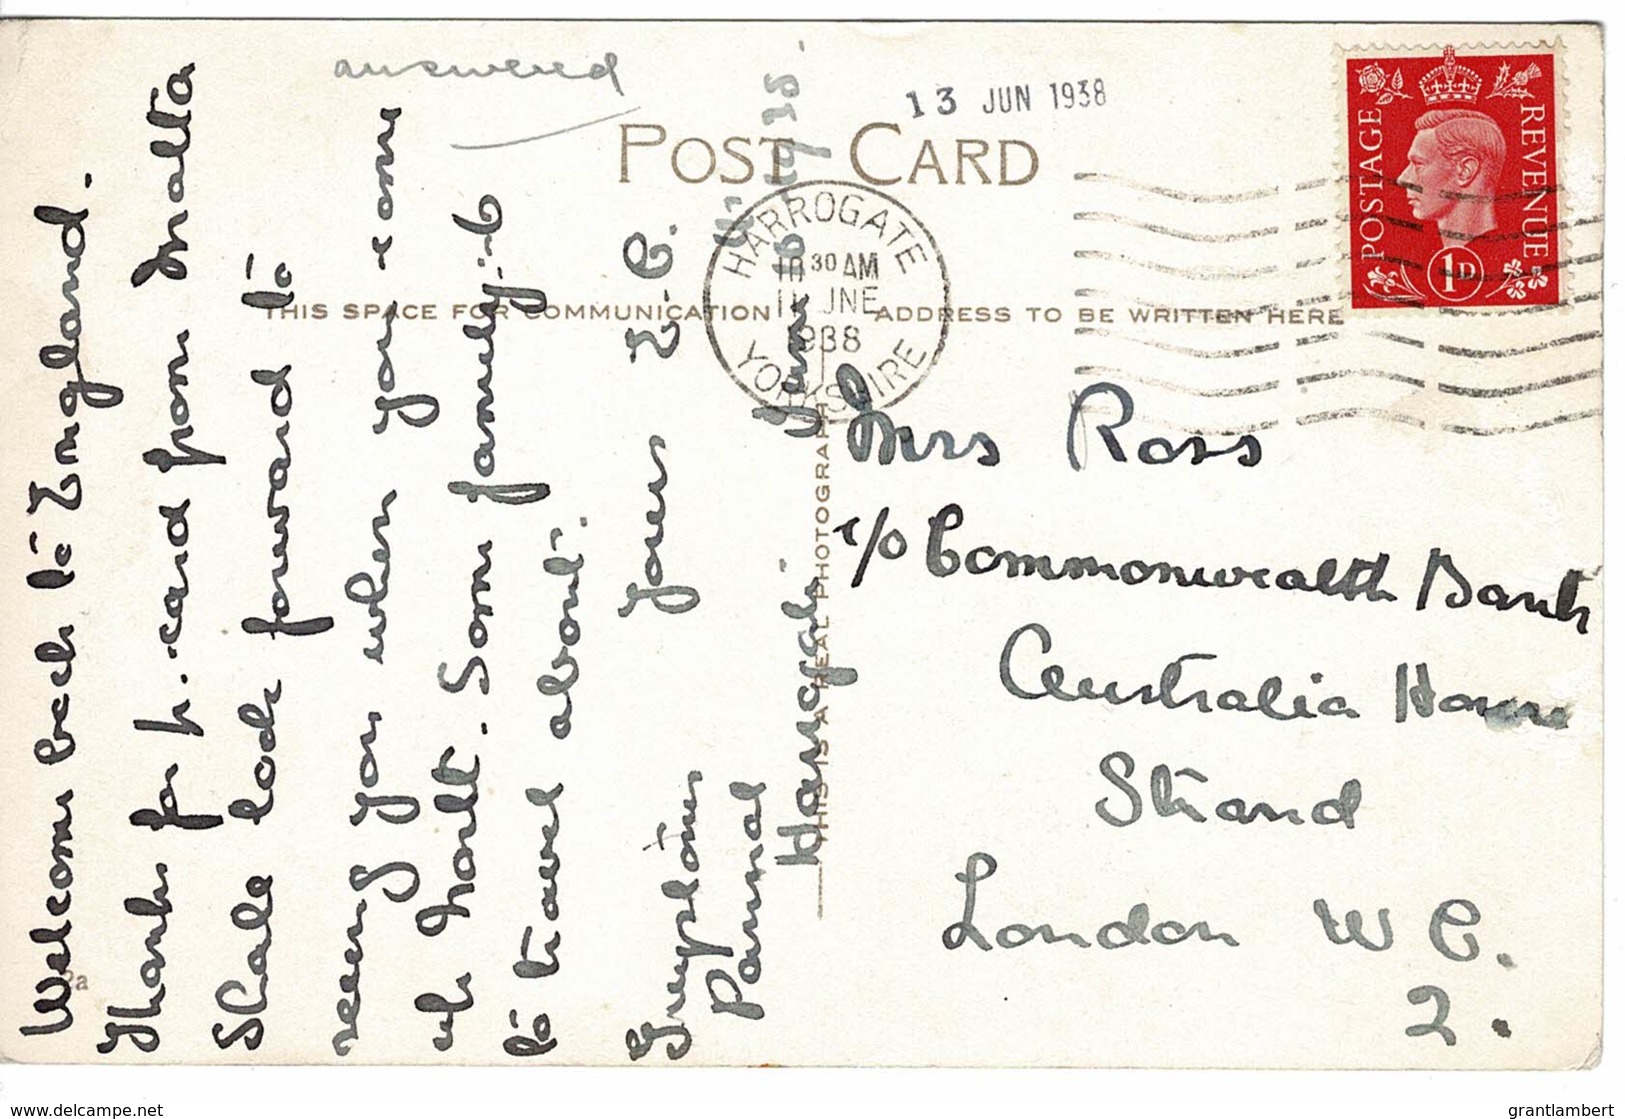 answered
13 JUN 1938
POST CARD
HARROGATE
10 30 AM
11 JNE
1938
YORKSHIRE
POSTAGE
REVENUE
1D
THIS SPACE FOR COMMUNICATION
ADDRESS TO BE WRITTEN HERE
THIS IS A REAL PHOTOGRAPH
Welcome back to England.
Thanks for p.card from Malta
Shall look forward to
seeing you when you come
up North. Some family
to travel about.
Yours E. C.
Greystones
Pannal
Harrogate
June 10
1938.
Mrs Ross
c/o Commonwealth Bank
Australia House
Strand
London W C.
2.
2a
delcampe.net
grantlambert